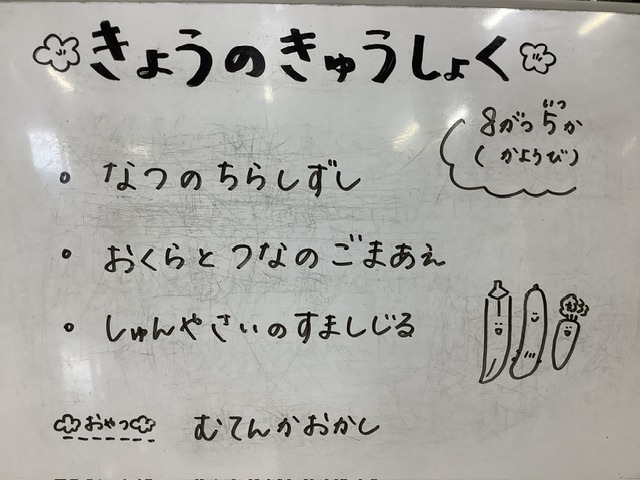 きょうのきゅうしょく
8がつ5か
いつ
(かようび)
• なつのちらしずし
• おくらとつなのごまあえ
• しゅんやさいのすましじる
おやつ むてんかおかし